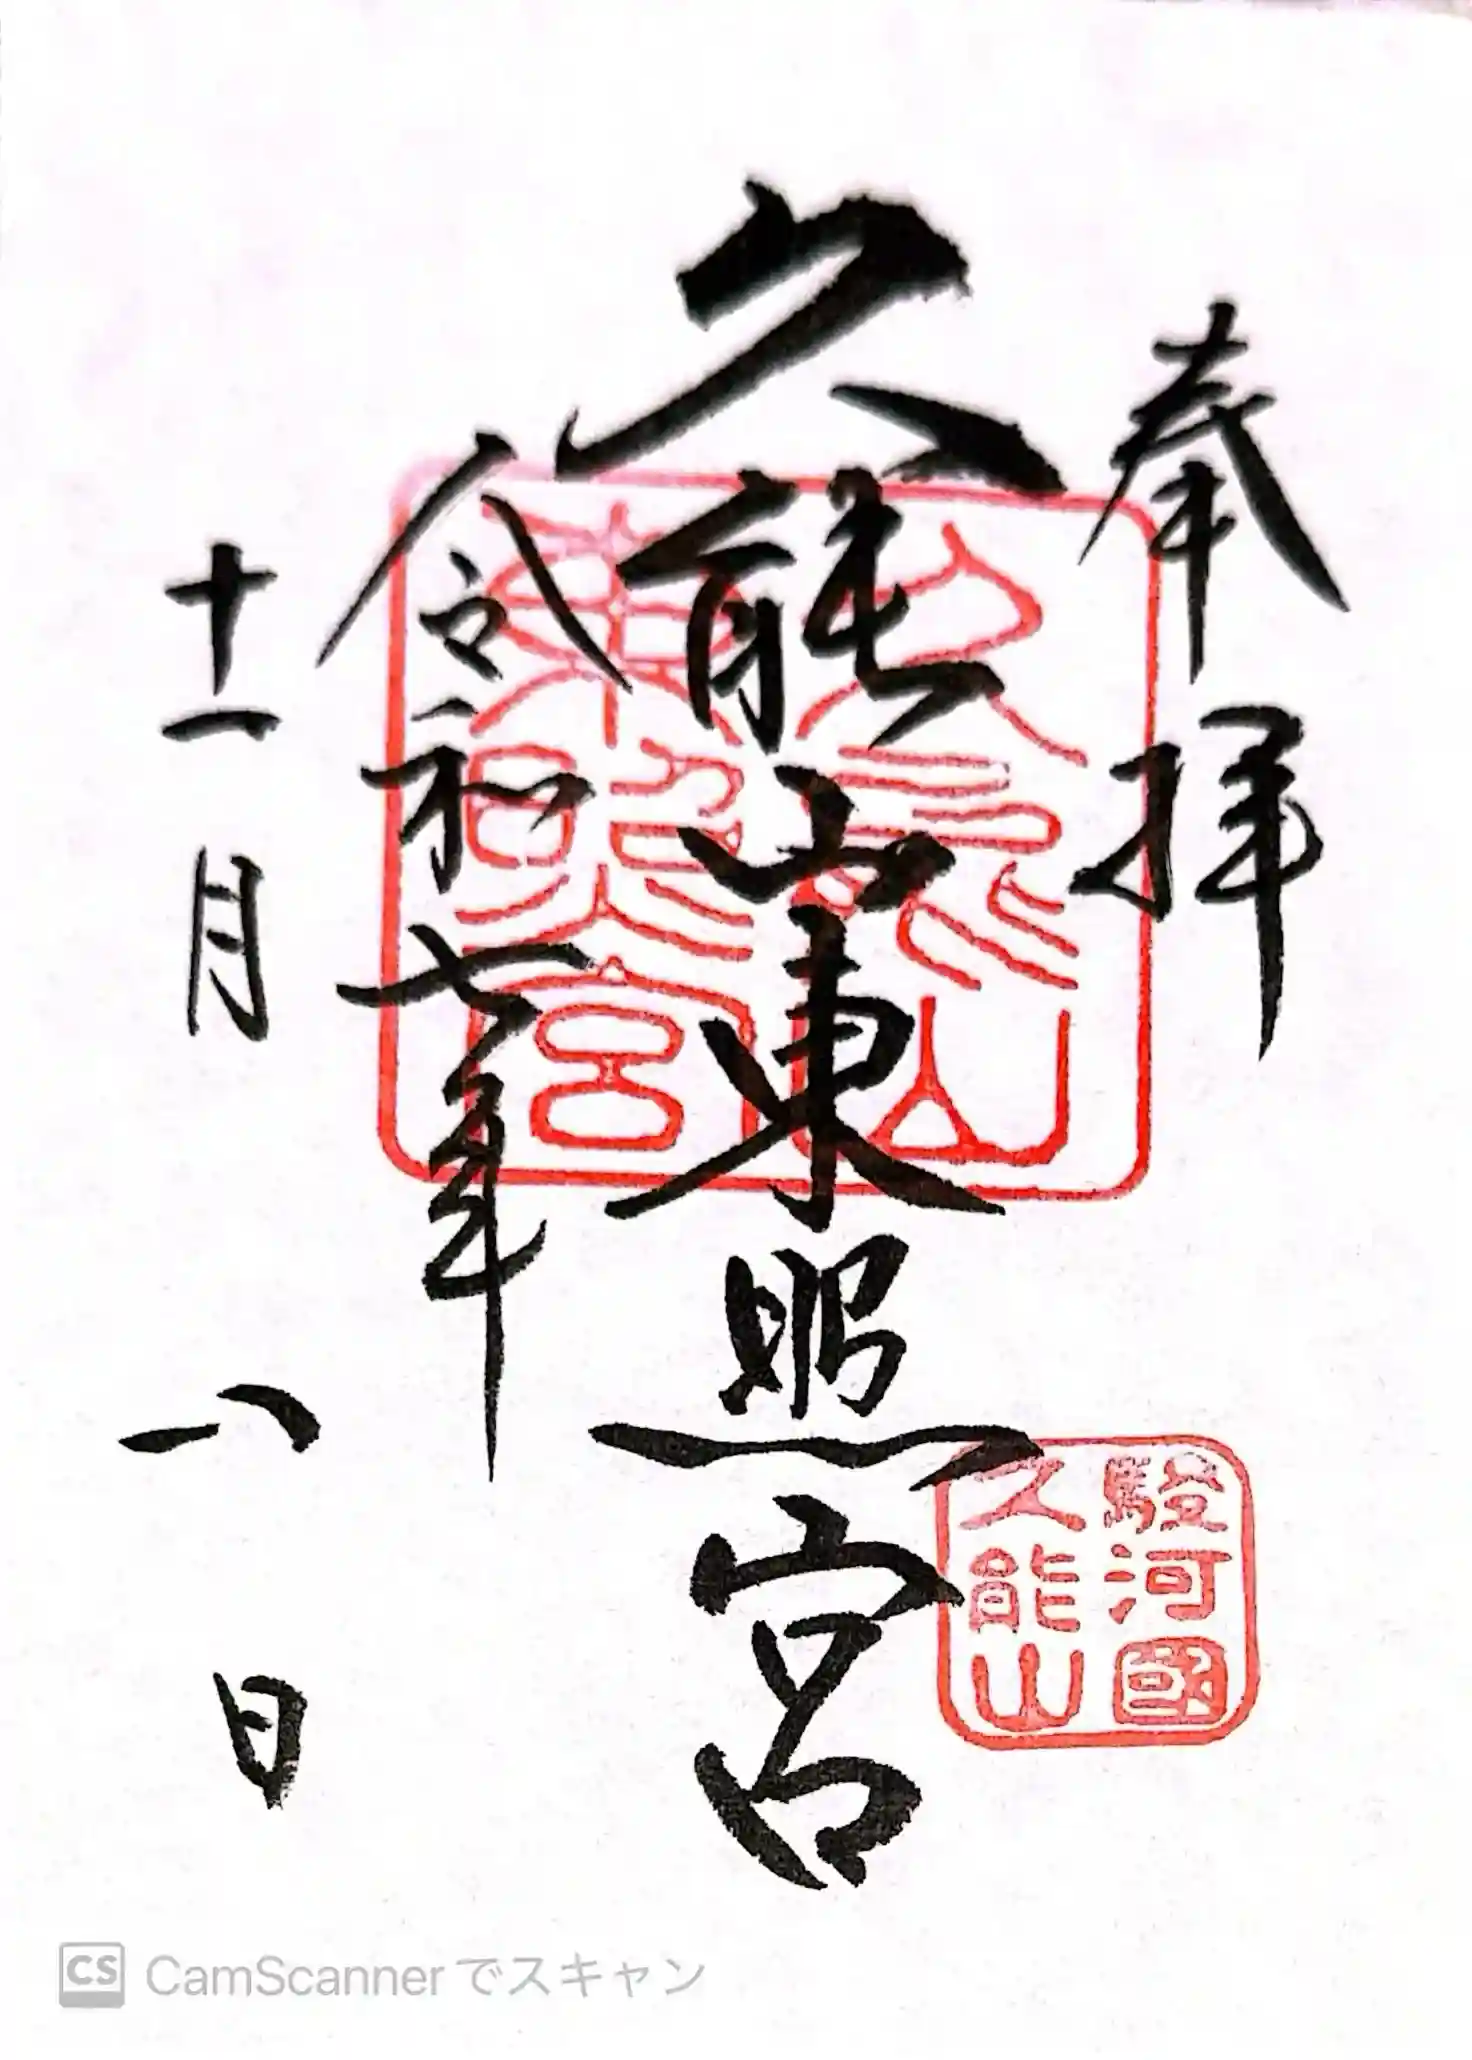 奉拝
久能山東照宮
令和七年
十一月八日
久能山
東照宮
駿河國
久能山
CS CamScannerでスキャン